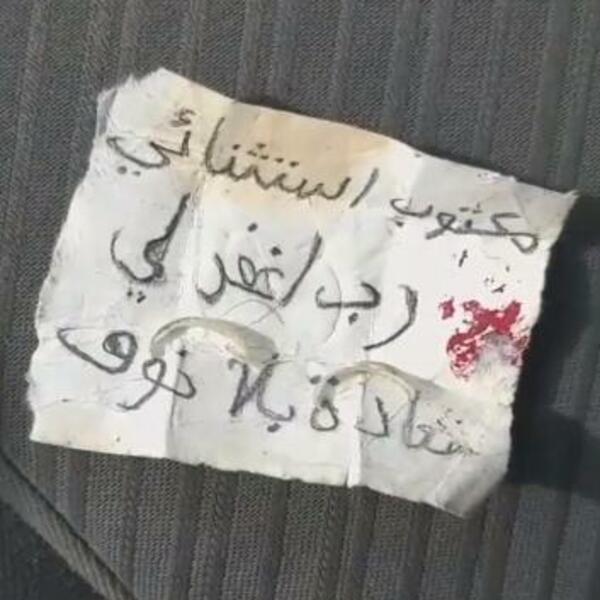 مكتوب استثنائي
رب اغفر لي
سعادة بلا خوف